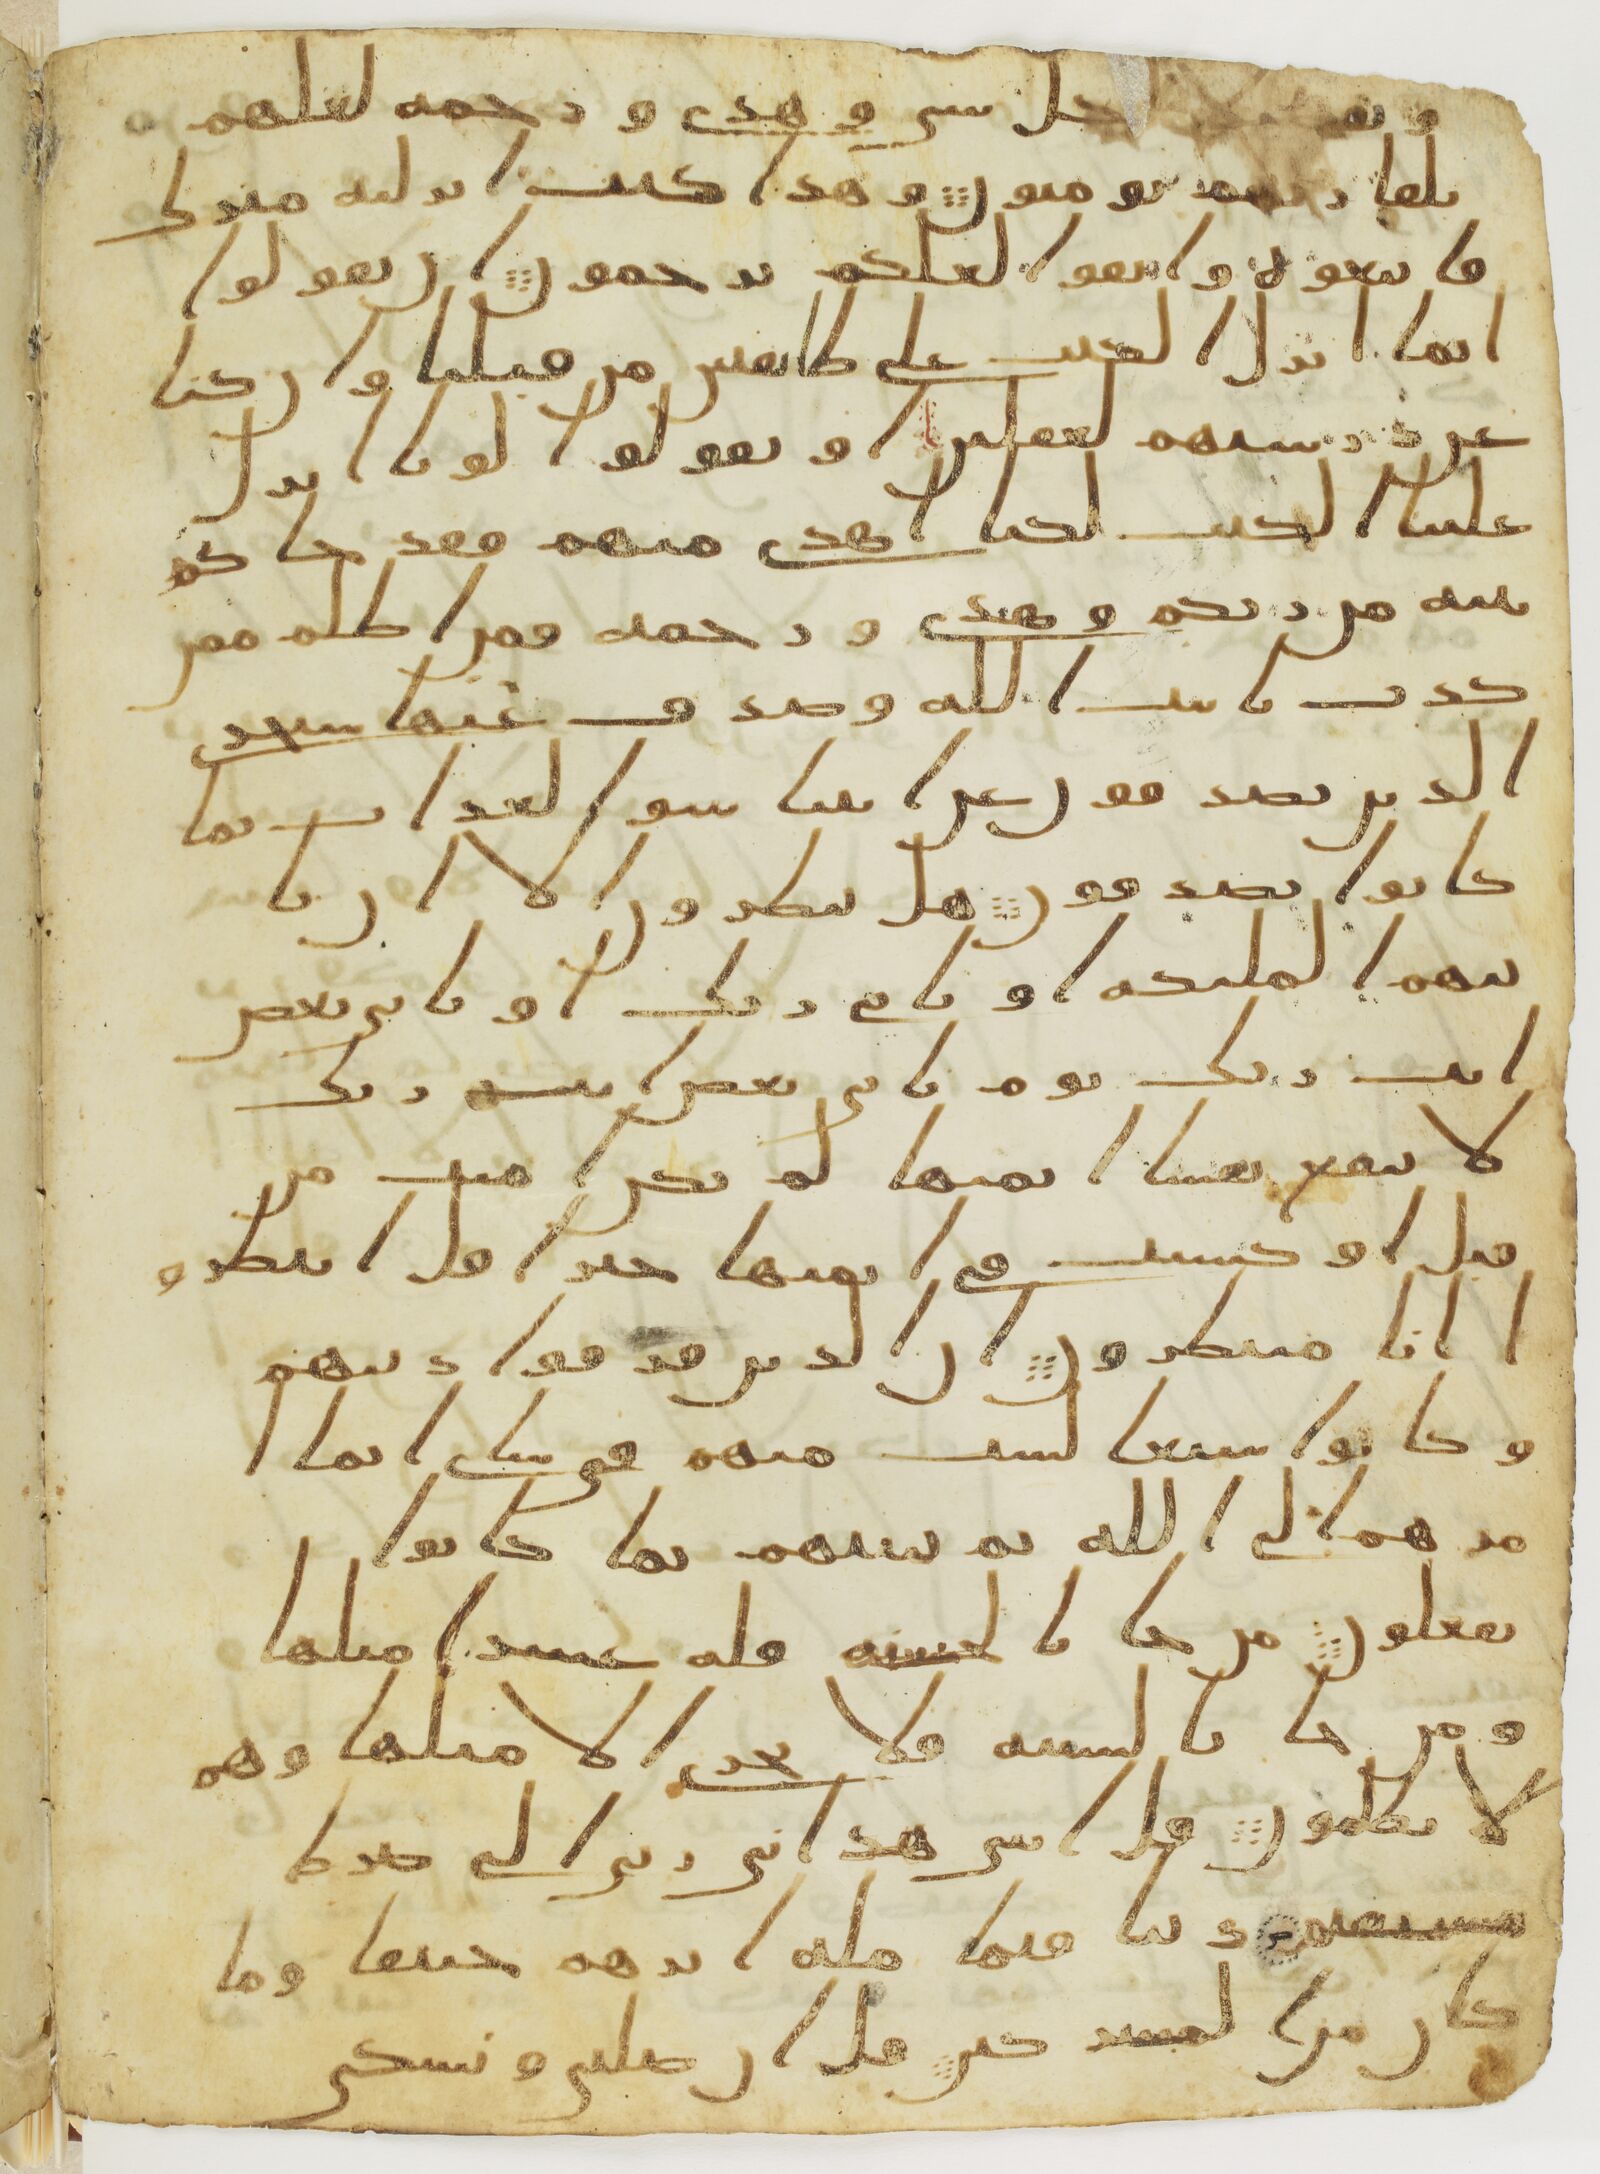 كل شى وهدى ورحمه لعلهم
بلقا ربهم يومنون وهذا كتب انزلنه مبرك
فاتبعوه واتقوا لعلكم ترحمون ان تقولوا
انما انزل الكتب على طائفتين من قبلنا وان كنا
عن درستهم لغفلين او تقولوا لو انا انزل
علينا الكتب لكنا اهدى منهم فقد جاكم
بينه من ربكم وهدى ورحمه فمن اظلم ممن
كذب بايت الله وصدف عنها سنجزى
الذين يصدفون عن ايتنا سو العذاب بما
كانوا يصدفون هل ينظرون الا ان تا
تيهم الملئكه او ياتى ربك او ياتى بعض
ايت ربك يوم ياتى بعض ايت ربك
لا ينفع نفسا ايمنها لم تكن امنت من
قبل او كسبت فى ايمنها خيرا قل انتظرو
ا انا منتظرون ان الذين فرقوا دينهم
وكانوا شيعا لست منهم فى شى انما ا
مرهم الى الله ثم ينبيهم بما كانوا
يفعلون من جا بالحسنه فله عشر امثلها
ومن جا بالسييه فلا يجزى الا مثلها وهم
لا يظلمون قل اننى هدانى ربى الى صرط
مستقيم دينا قيما مله ابرهم حنيفا وما
كان من المشركين قل ان صلتى ونسكى